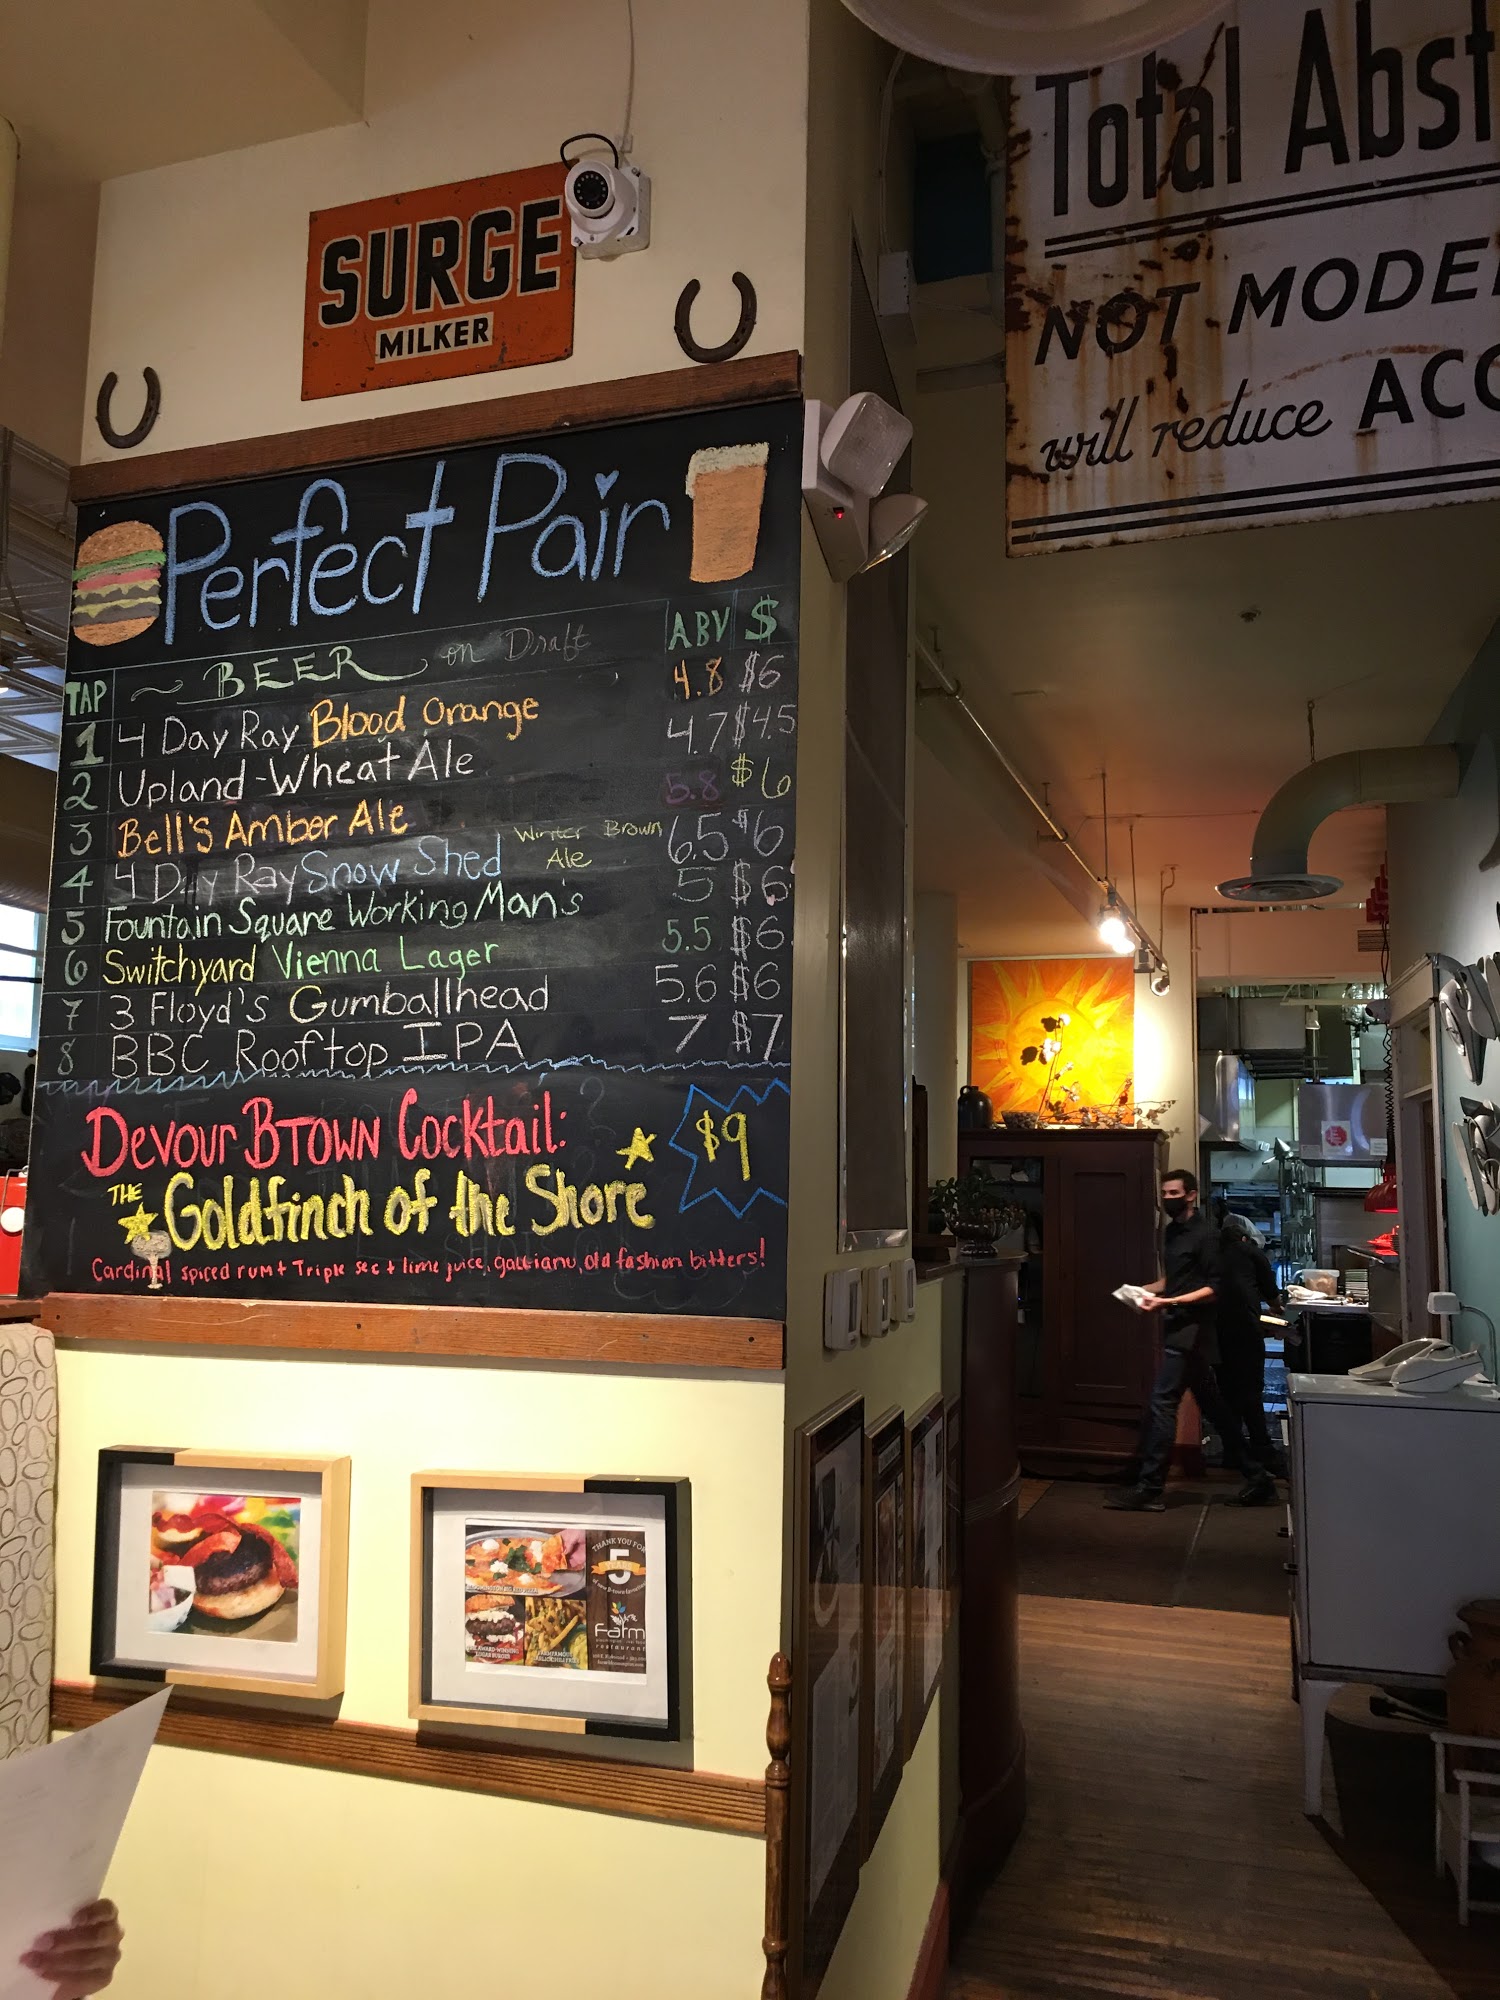 SURGE
MILKER
Total Abst
NOT MODE
will reduce ACC
Perfect Pair
TAP BEER on Draft ABV $
1 4 Day Ray Blood Orange 4.8 $6
2 Upland-Wheat Ale 4.7 $4.5
3 Bell's Amber Ale 5.8 $6
4 4 Day Ray Snow Shed Winter Brown Ale 6.5 $6
5 Fountain Square Working Man's 5 $6
6 Switchyard Vienna Lager 5.5 $6
7 3 Floyd's Gumballhead 5.6 $6
8 BBC Rooftop IPA 7 $7
Devour BTOWN Cocktail:
THE Goldfinch of the Shore $9
Cardinal spiced rum + Triple sec + lime juice, galliano, old fashion bitters!
THANK YOU FOR
5
YEARS
Farm
restaurant